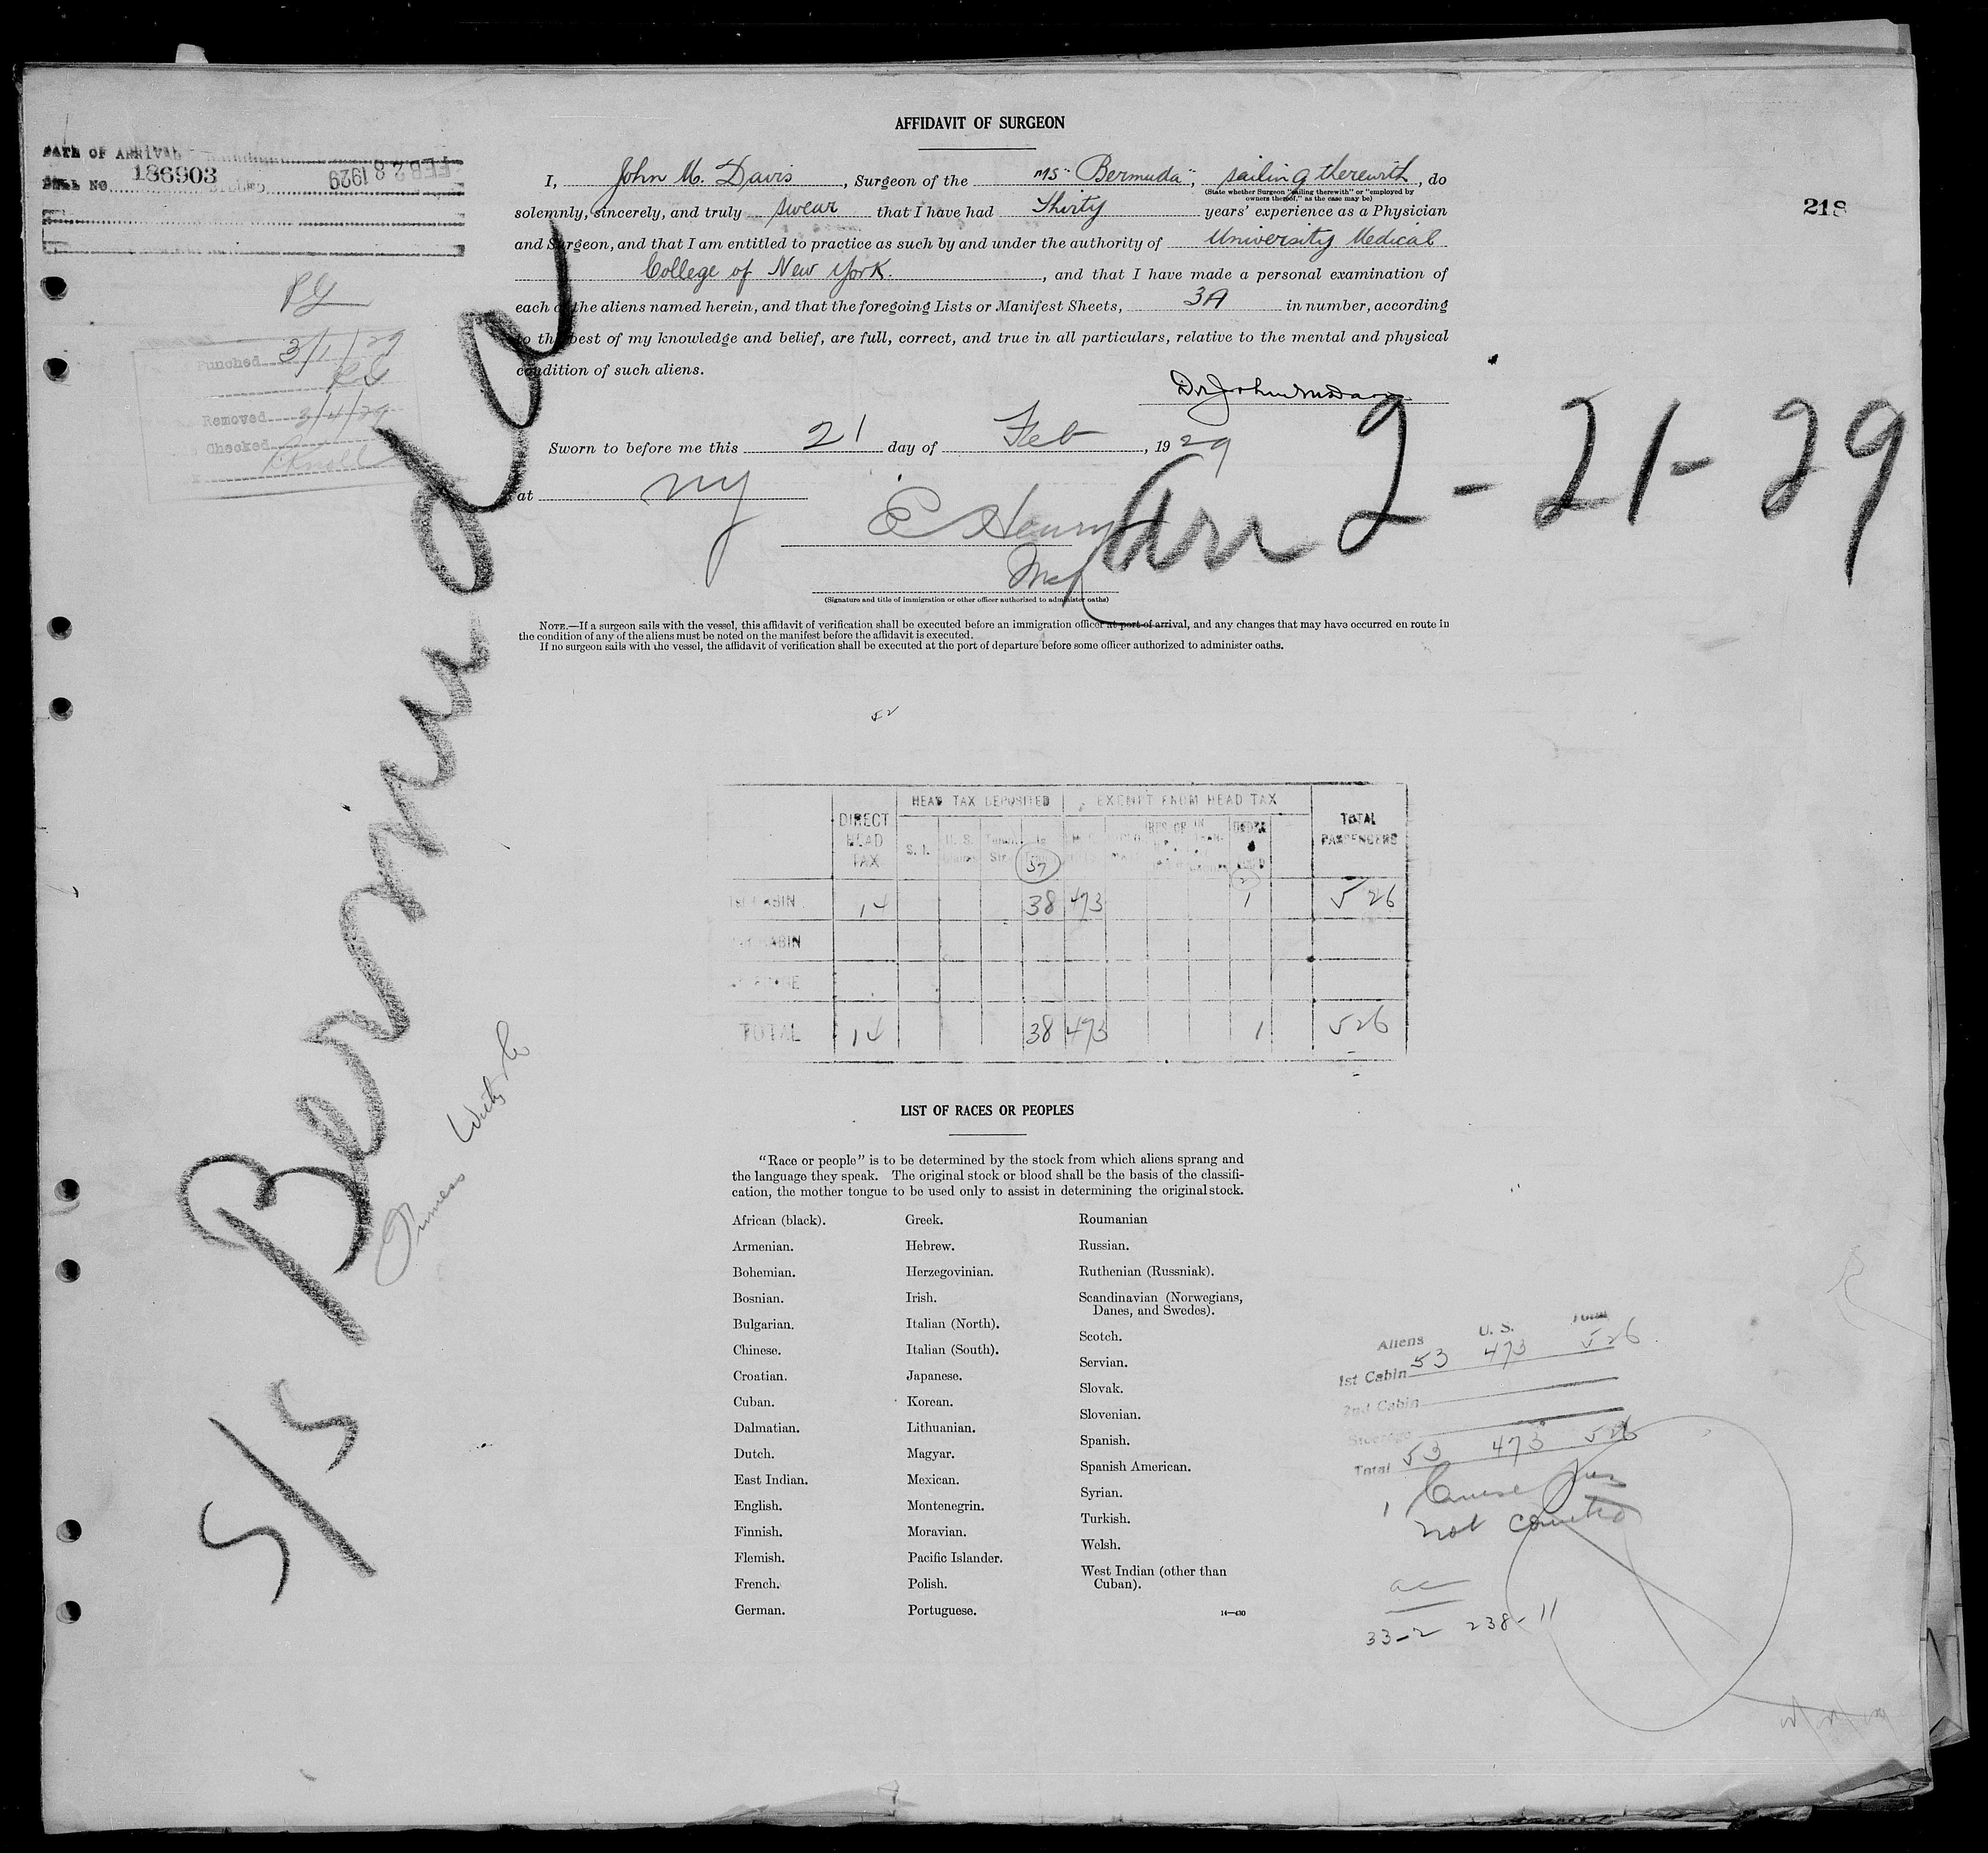 AFFIDAVIT OF SURGEON
DATE OF ARRIVAL
BILL NO. 186903
FEB 28 1929
218
I, John M. Davis, Surgeon of the MS "Bermuda", sailing therewith, do
(State whether Surgeon "sailing therewith" or "employed by
owners thereof," as the case may be)
solemnly, sincerely, and truly swear that I have had Thirty years' experience as a Physician
and Surgeon, and that I am entitled to practice as such by and under the authority of University Medical
College of New York., and that I have made a personal examination of
each of the aliens named herein, and that the foregoing Lists or Manifest Sheets, 3A in number, according
to the best of my knowledge and belief, are full, correct, and true in all particulars, relative to the mental and physical
condition of such aliens.
Punched 3/1/29
Removed 3/4/29
Checked
Sworn to before me this 21 day of Feb, 1929
at NY
Arr 2-21-29
E Henry
(Signature and title of immigration or other officer authorized to administer oaths)
NOTE.—If a surgeon sails with the vessel, this affidavit of verification shall be executed before an immigration officer at port of arrival, and any changes that may have occurred en route in
the condition of any of the aliens must be noted on the manifest before the affidavit is executed.
If no surgeon sails with the vessel, the affidavit of verification shall be executed at the port of departure before some officer authorized to administer oaths.
S/S Bermuda
52
HEAD TAX DEPOSITED EXEMPT FROM HEAD TAX
DIRECT HEAD TAX S. I. U. S. TOTAL PASSENGERS
57 2
1st CABIN 14 38 473 1 526
CABIN
TOTAL 14 38 473 1 526
LIST OF RACES OR PEOPLES
"Race or people" is to be determined by the stock from which aliens sprang and
the language they speak. The original stock or blood shall be the basis of the classifi-
cation, the mother tongue to be used only to assist in determining the original stock.
African (black).
Armenian.
Bohemian.
Bosnian.
Bulgarian.
Chinese.
Croatian.
Cuban.
Dalmatian.
Dutch.
East Indian.
English.
Finnish.
Flemish.
French.
German.
Greek.
Hebrew.
Herzegovinian.
Irish.
Italian (North).
Italian (South).
Japanese.
Korean.
Lithuanian.
Magyar.
Mexican.
Montenegrin.
Moravian.
Pacific Islander.
Polish.
Portuguese.
Roumanian
Russian.
Ruthenian (Russniak).
Scandinavian (Norwegians,
Danes, and Swedes).
Scotch.
Servian.
Slovak.
Slovenian.
Spanish.
Spanish American.
Syrian.
Turkish.
Welsh.
West Indian (other than
Cuban).
14—430
Aliens U. S. Total
1st Cabin 53 473 526
2nd Cabin
Steerage
Total 53 473 526
1 Cruise
not counted
33-2 238-11